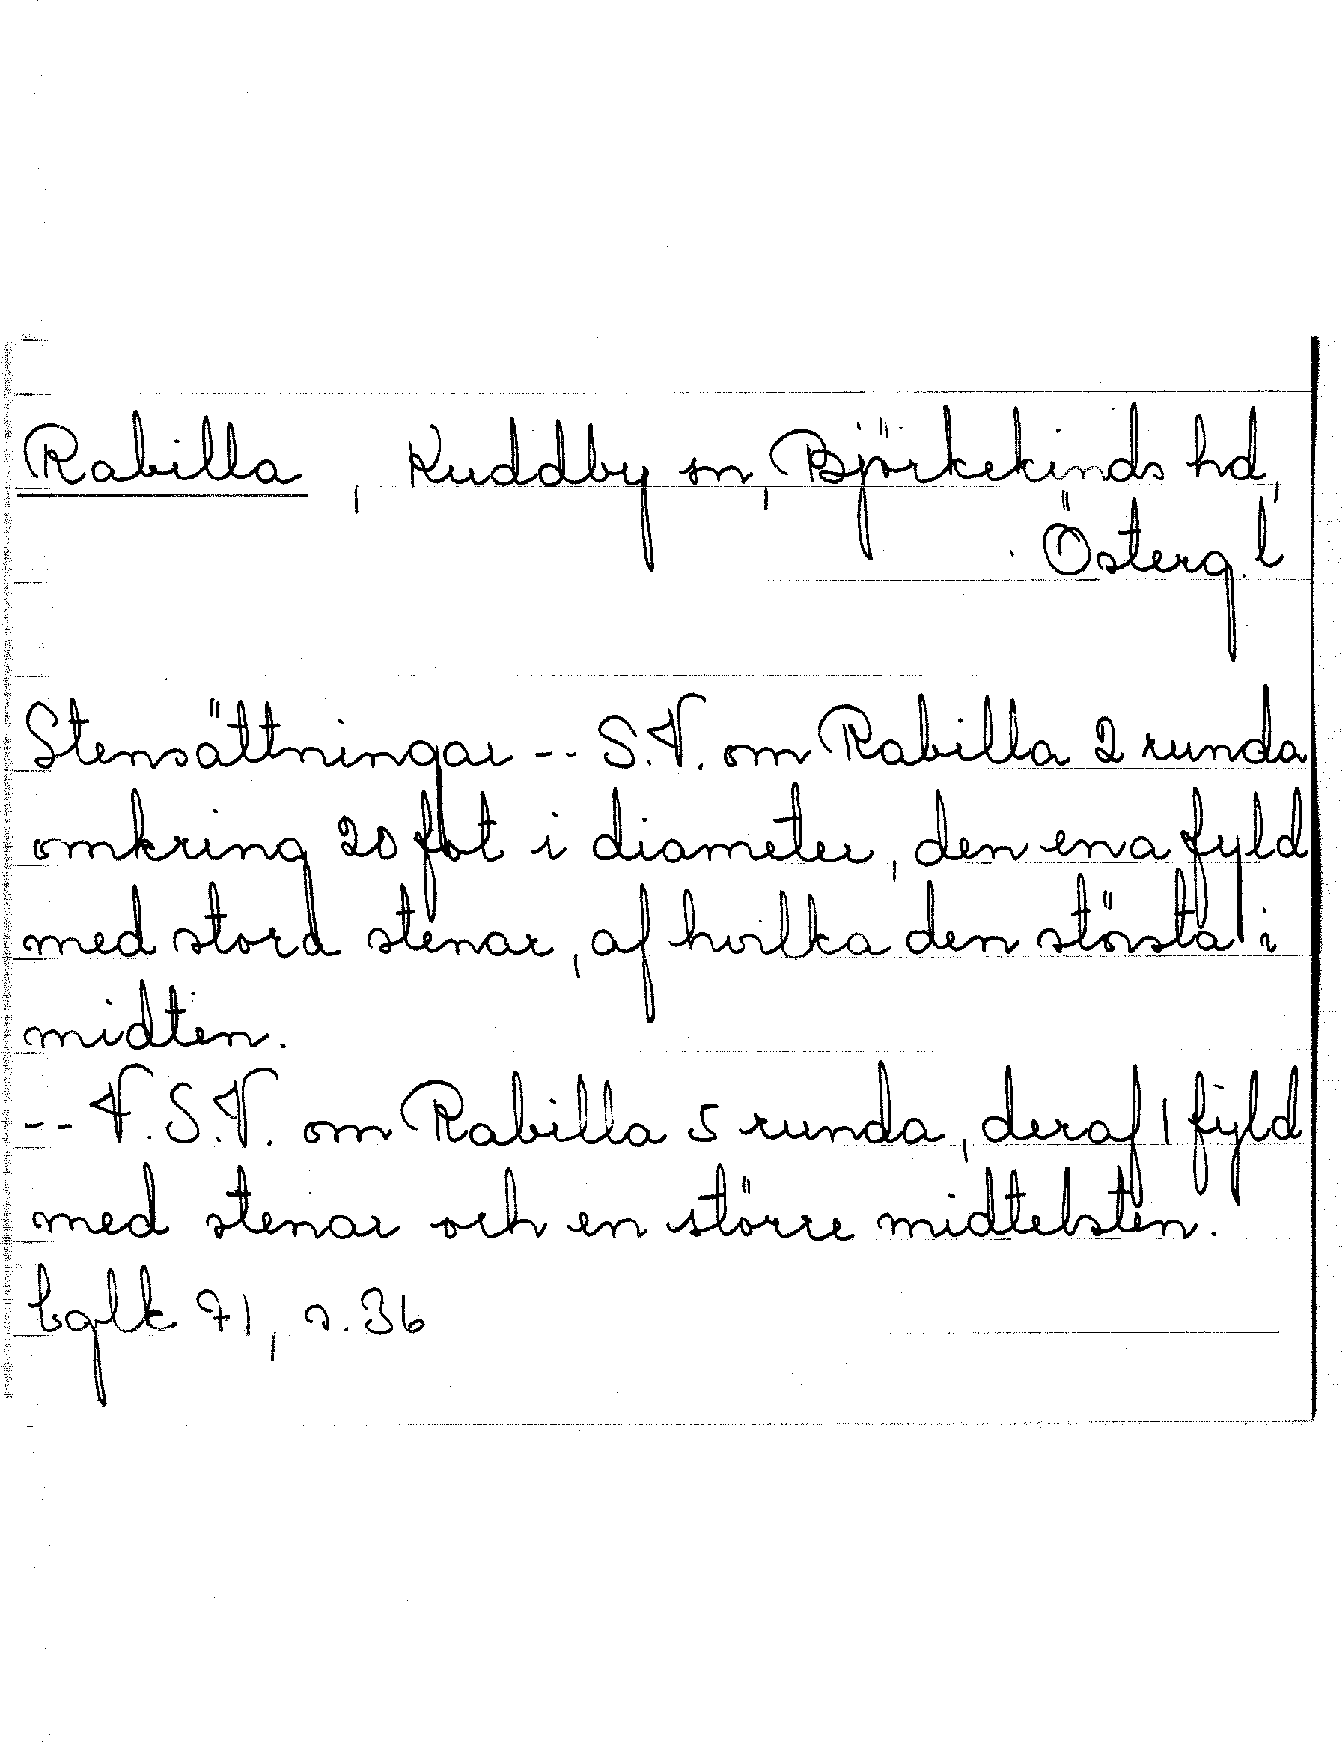 Rabilla, Kuddby sn, Björkekinds hd,
Österg. l
Stensättningar -- S.V. om Rabilla 2 runda
omkring 20 fot i diameter, den ena fyld
med stora stenar, af hvilka den största i
midten.
-- V.S.V. om Rabilla 5 runda, deraf 1 fyld
med stenar och en större midtelsten.
bglk 71, s. 36